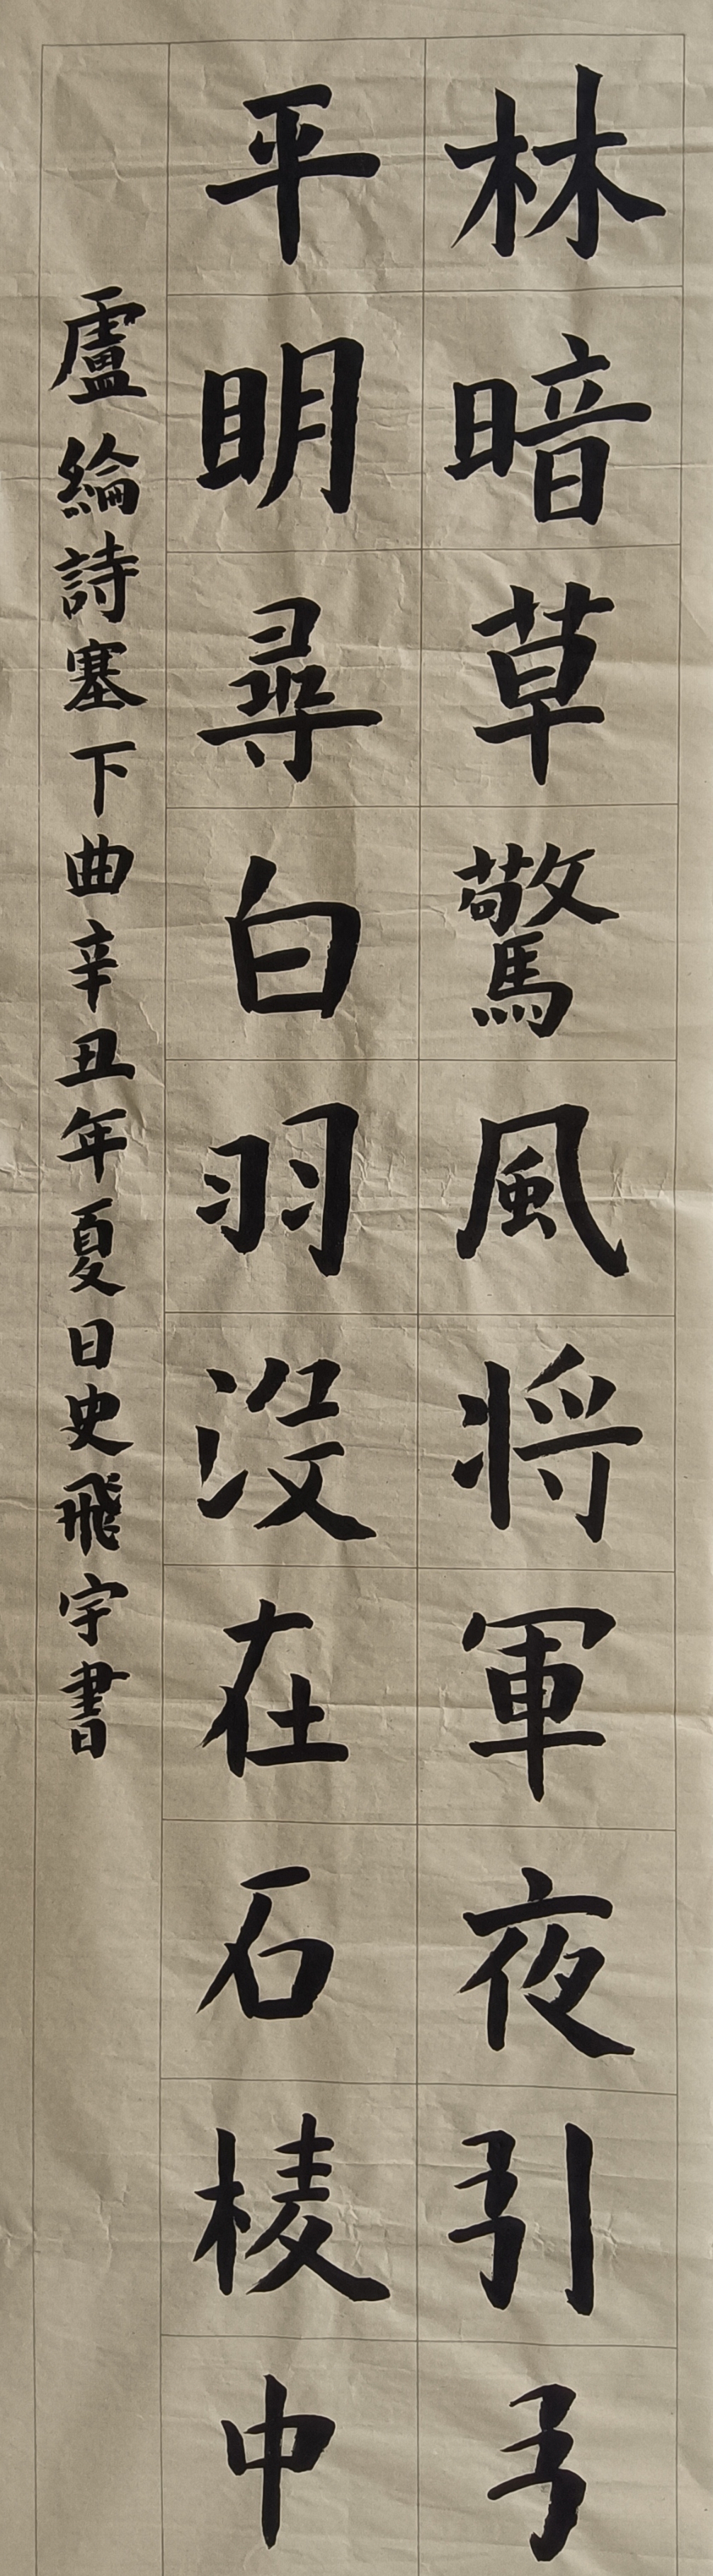 林暗草驚風将軍夜引弓
平明尋白羽沒在石棱中
盧綸詩塞下曲辛丑年夏日史飛宇書